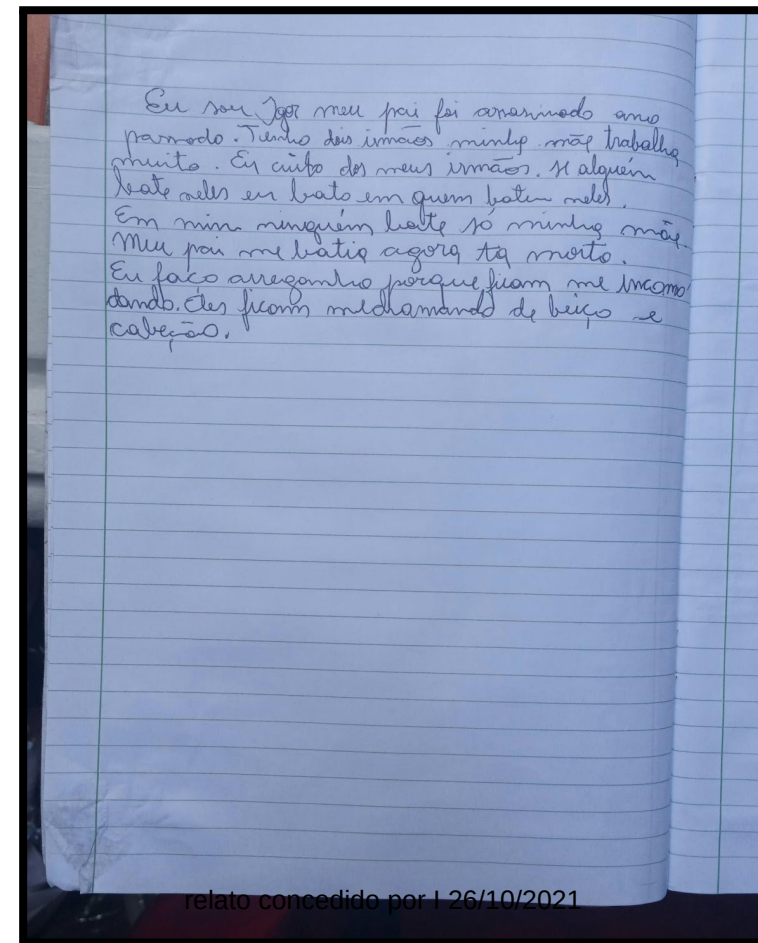 Eu sou Igor meu pai foi assasinado ano
passado. Tenho dois irmãos minha mãe trabalha
muito. Eu cuido dos meus irmãos. se alguém
bate neles eu bato em quem bateu neles.
Em mim ninguém bate só minha mãe.
Meu pai me batia agora ta morto.
Eu faco arreganho porque ficam me incomo
dando. Eles ficam me chamando de beiço e
cabeção.
relato concedido por I 26/10/2021